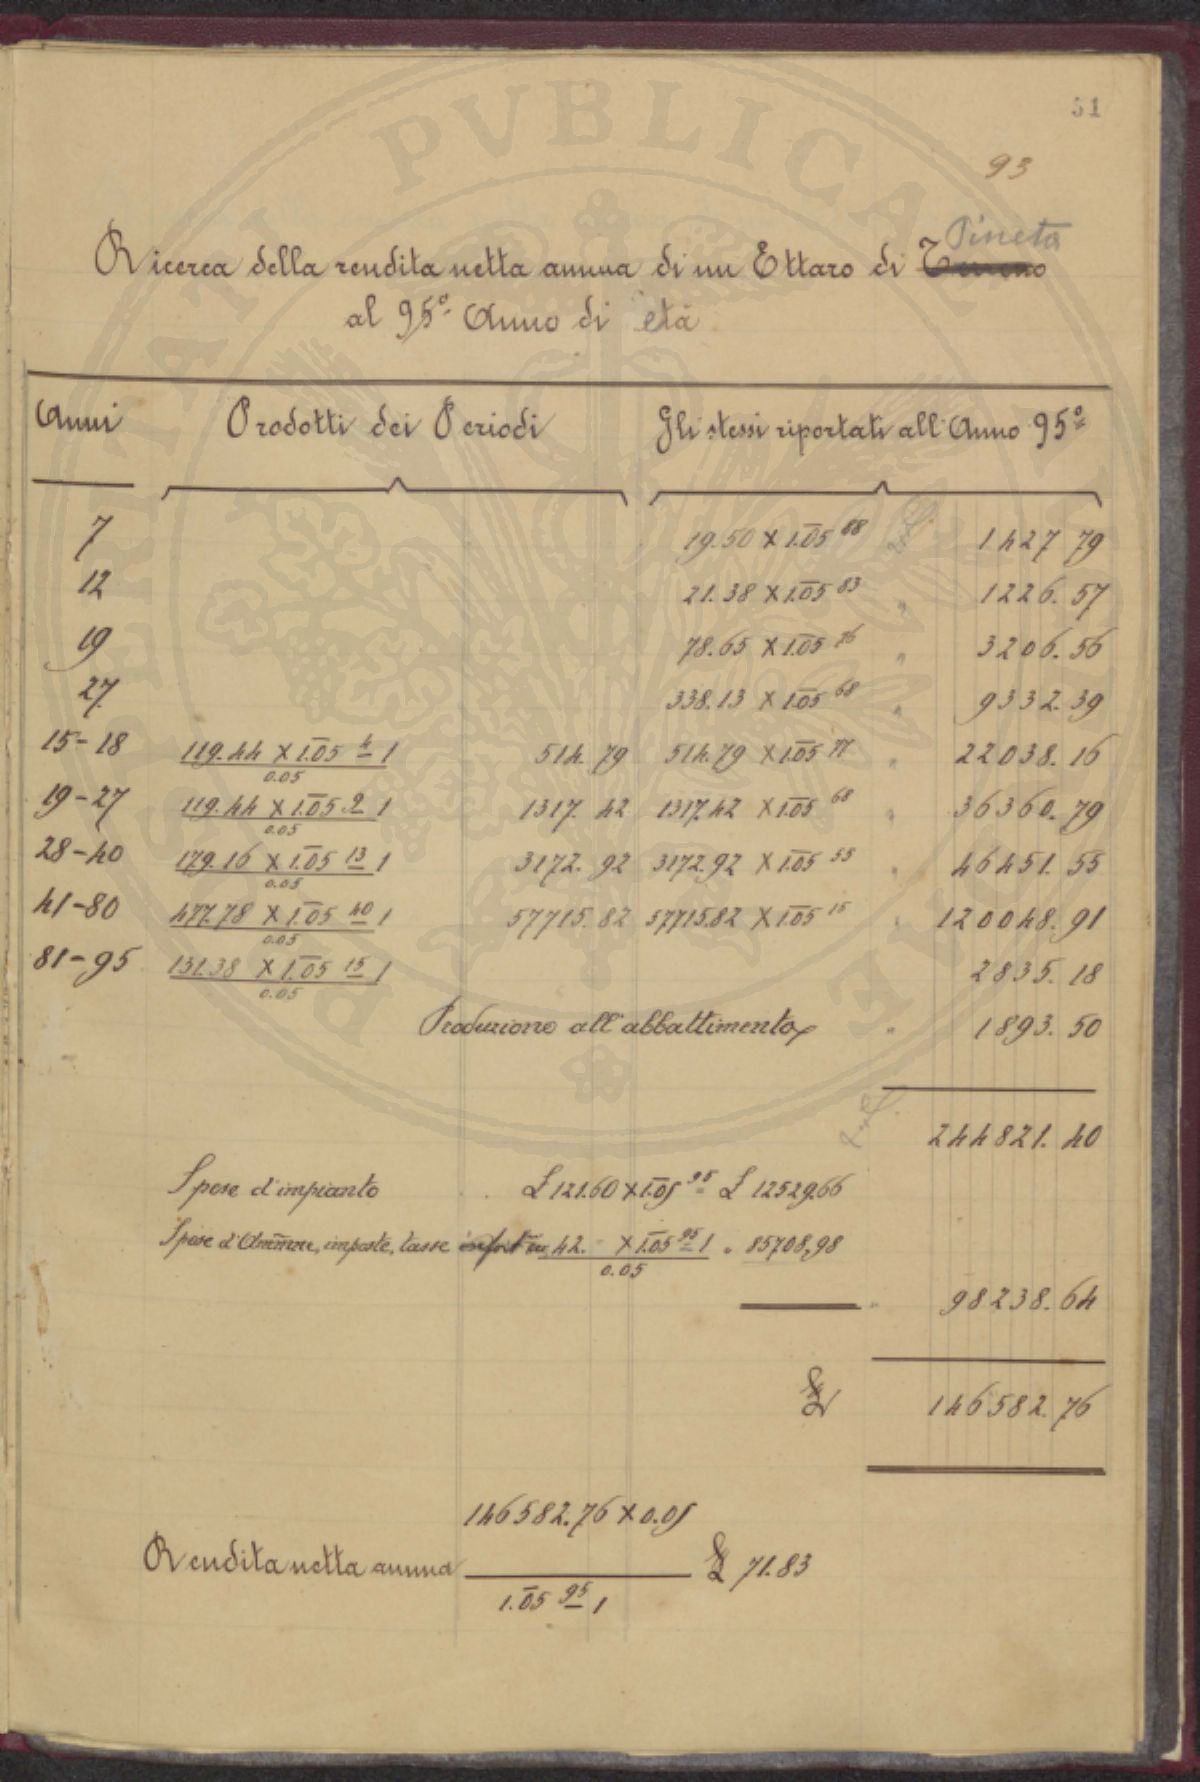 51
93
Pineta
Ricerca della rendita netta annua di un Ettaro di Terreno
al 95º Anno di età
Anni Prodotti dei Periodi Gli stessi riportati all'Anno 95º
7 19.50 X 1.05 88 1427 79
12 21.38 X 1.05 83 " 1226.57
19 78.65 X 1.05 76 " 3206.56
27 338.13 X 1.05 68 " 9332.39
15-18 119.44 X 1.05 4 - 1 514.79 514.79 X 1.05 77 " 22038.16
0.05
19-27 119.44 X 1.05 9 - 1 1317.42 1317.42 X 1.05 68 " 36360.79
0.05
28-40 179.16 X 1.05 13 - 1 3172.92 3172.92 X 1.05 55 " 46451.55
0.05
41-80 477.78 X 1.05 40 - 1 57715.82 57715.82 X 1.05 15 " 120048.91
0.05
81-95 131.38 X 1.05 15 - 1 2835.18
0.05
Produzione all'abbattimento " 1893.50
244821.40
Spese d'impianto £ 121.60 X 1.05 95 = £ 12529.66
Spese d'Ammne, imposte, tasse 42. X 1.05 95 - 1 " 85708,98
0.05
" 98238.64
£ 146582.76
146582.76 X 0.05
Rendita netta annua £ 71.83
1.05 95 - 1
SENATI PVBLICAE